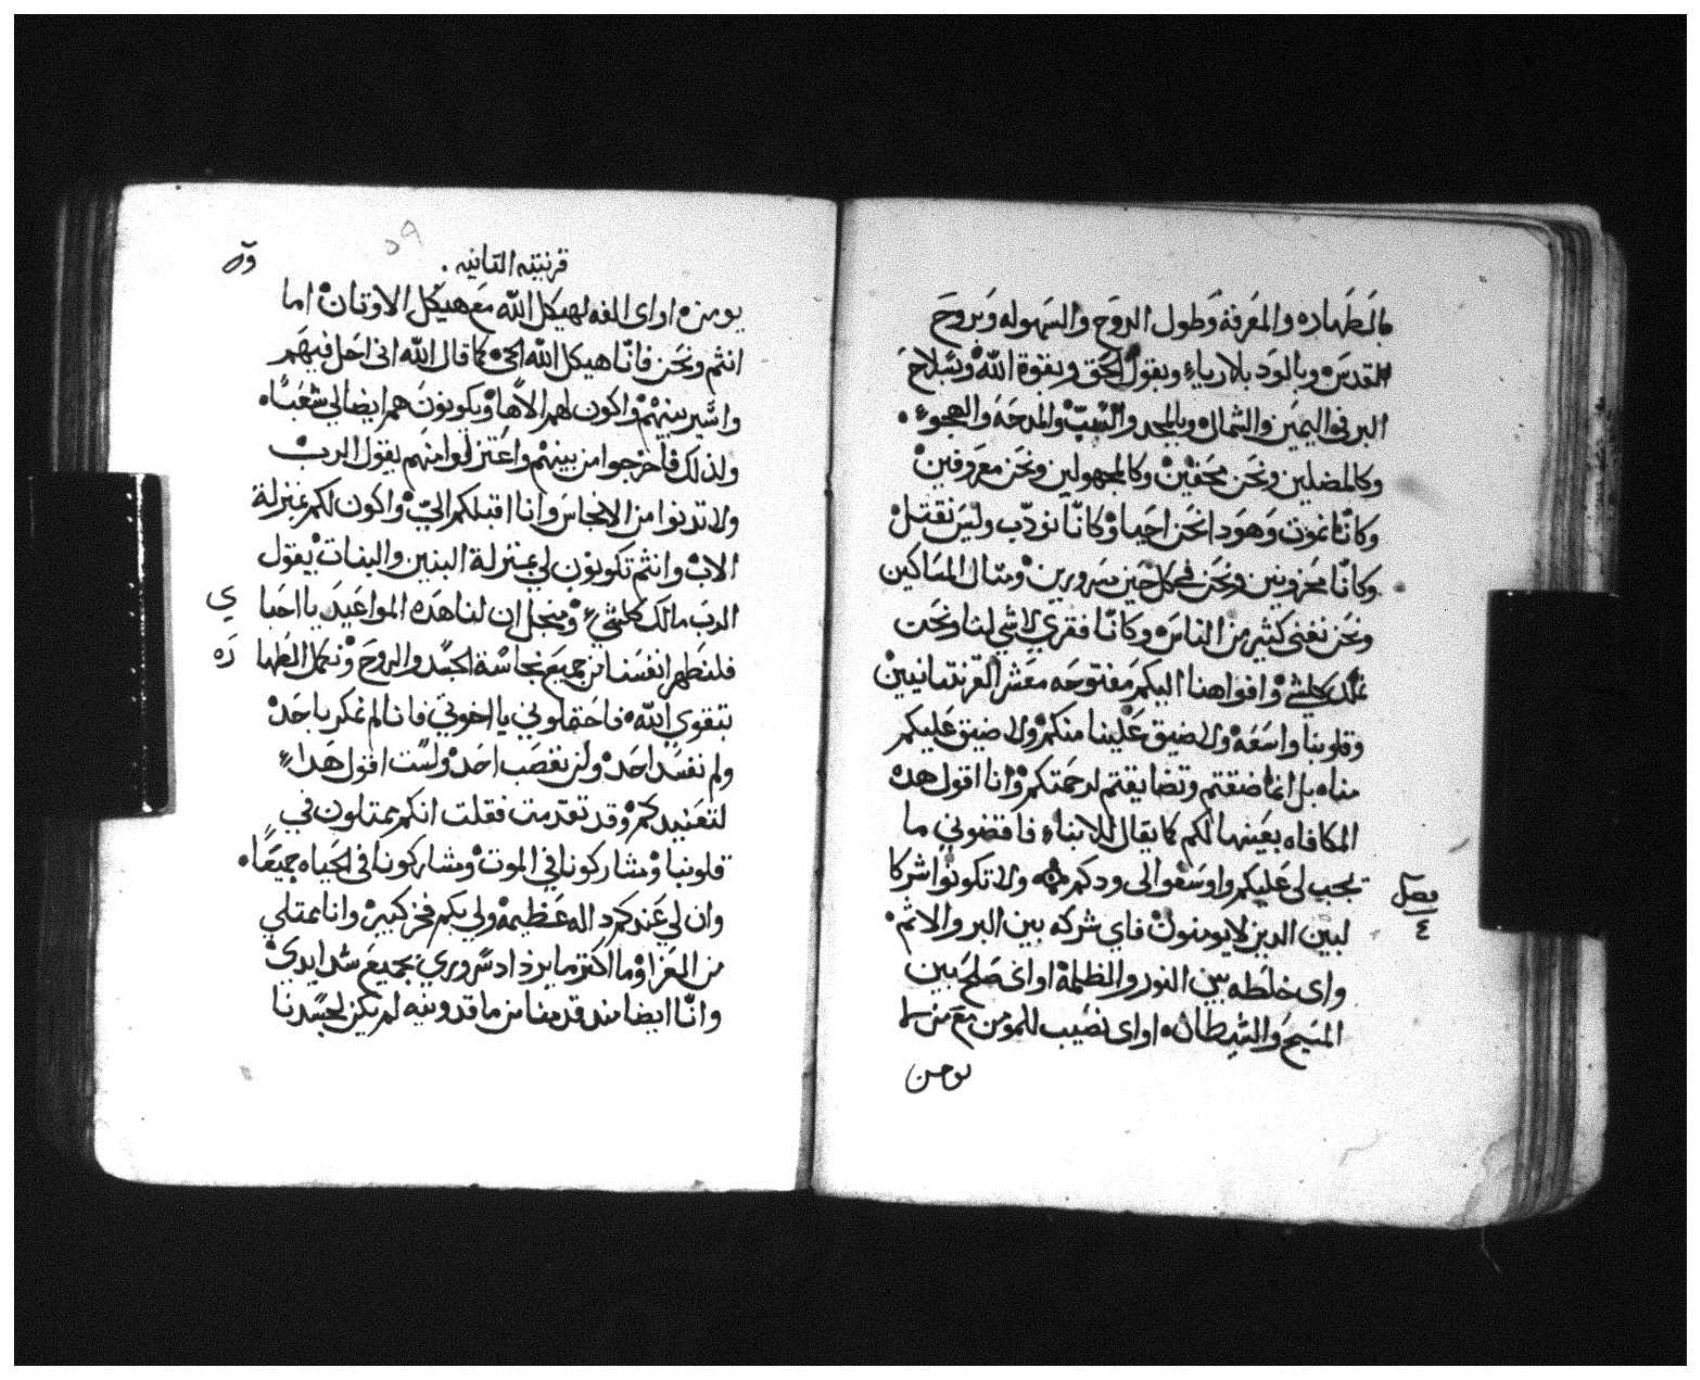 بالطهاره والمعرفة وطول الروح والسهوله وبروح
القدس وبالود بلا رياء وبقول الحق وبقوة الله وبسلاح
البر في اليمين والشمال وبالمجد والسب والمدحه والهجو
وكالمضلين ونحن محقين وكالمجهولين ونحن معروفين
وكانّا نموت وهودا نحن احيا وكانّا نودّب وليس نقتل
وكانّا محزونين ونحن في كل حين مسرورين ومتال المساكين
ونحن نغني كثير من الناس وكانّا فقري لا شي لنا ونحن
نملك كلشي وافواهنا اليكم مفتوحه معشر القرنتانيين
وقلوبنا واسعه ولا ضيق عليكم منكم ولا ضيق عليكم
مناه بل انما ضقتم وتضايقتم لرحمتكم وانا اقول هده
المكافاه بعينها لكم كما يقال للابناء فاقضوني ما
يجب لي عليكم واوسعوا الى ودكم ولا تكونوا شركا
فصل
٤
لبين الدين لا يومنون فاي شركه بين البر والاثم
واى خلطه بين النور والظلمة او اى صلح بين
المسيح والشيطان او اى نصيب للمومن مع من لا
يومن
٥٩
قرنتيه التانيه
يومن او اى الفه لهيكل الله مع هيكل الاوتان اما
انتم ونحن فانّا هيكل الله الحي كما قال الله اني احل فيهم
واسير بينهم واكون لهم الاهًا ويكونون هم ايضا لي شعبًا
ولذلك فاخرجوا من بينهم واعتزلوا منهم يقول الرب
ولا تدنوا من الانجاس وانا اقبلكم الىّ واكون لكم بمنزلة
الاب وانتم تكونون لي بمنزلة البنين والبنات يقول
الرب مالك كلشي ومنجل ان لنا هده المواعيد يا احبا
ي
فلنطهر انفسنا من جميع نجاسة الجسد والروح ونعمل الطها
ره
بتقوي الله فاحتملوني يا اخوتي فانا لم نمكر باحد
ولم نفسد احد ولن نغصب احد ولست اقول هدا
لتعنيدكم وقد تقدمت فقلت انكم ممتلون في
قلوبنا ومشاركونا في الموت ومشاركونا في الحياه جميعًا
وان لي عندكم داله عظيمه ولي بكم فخر كبير وانا ممتلي
من العزا وما اكتر ما يزداد سروري بجميع شدايدي
وانّا ايضا مند قدمنا من ماقدونيه لم يكن لجسدنا